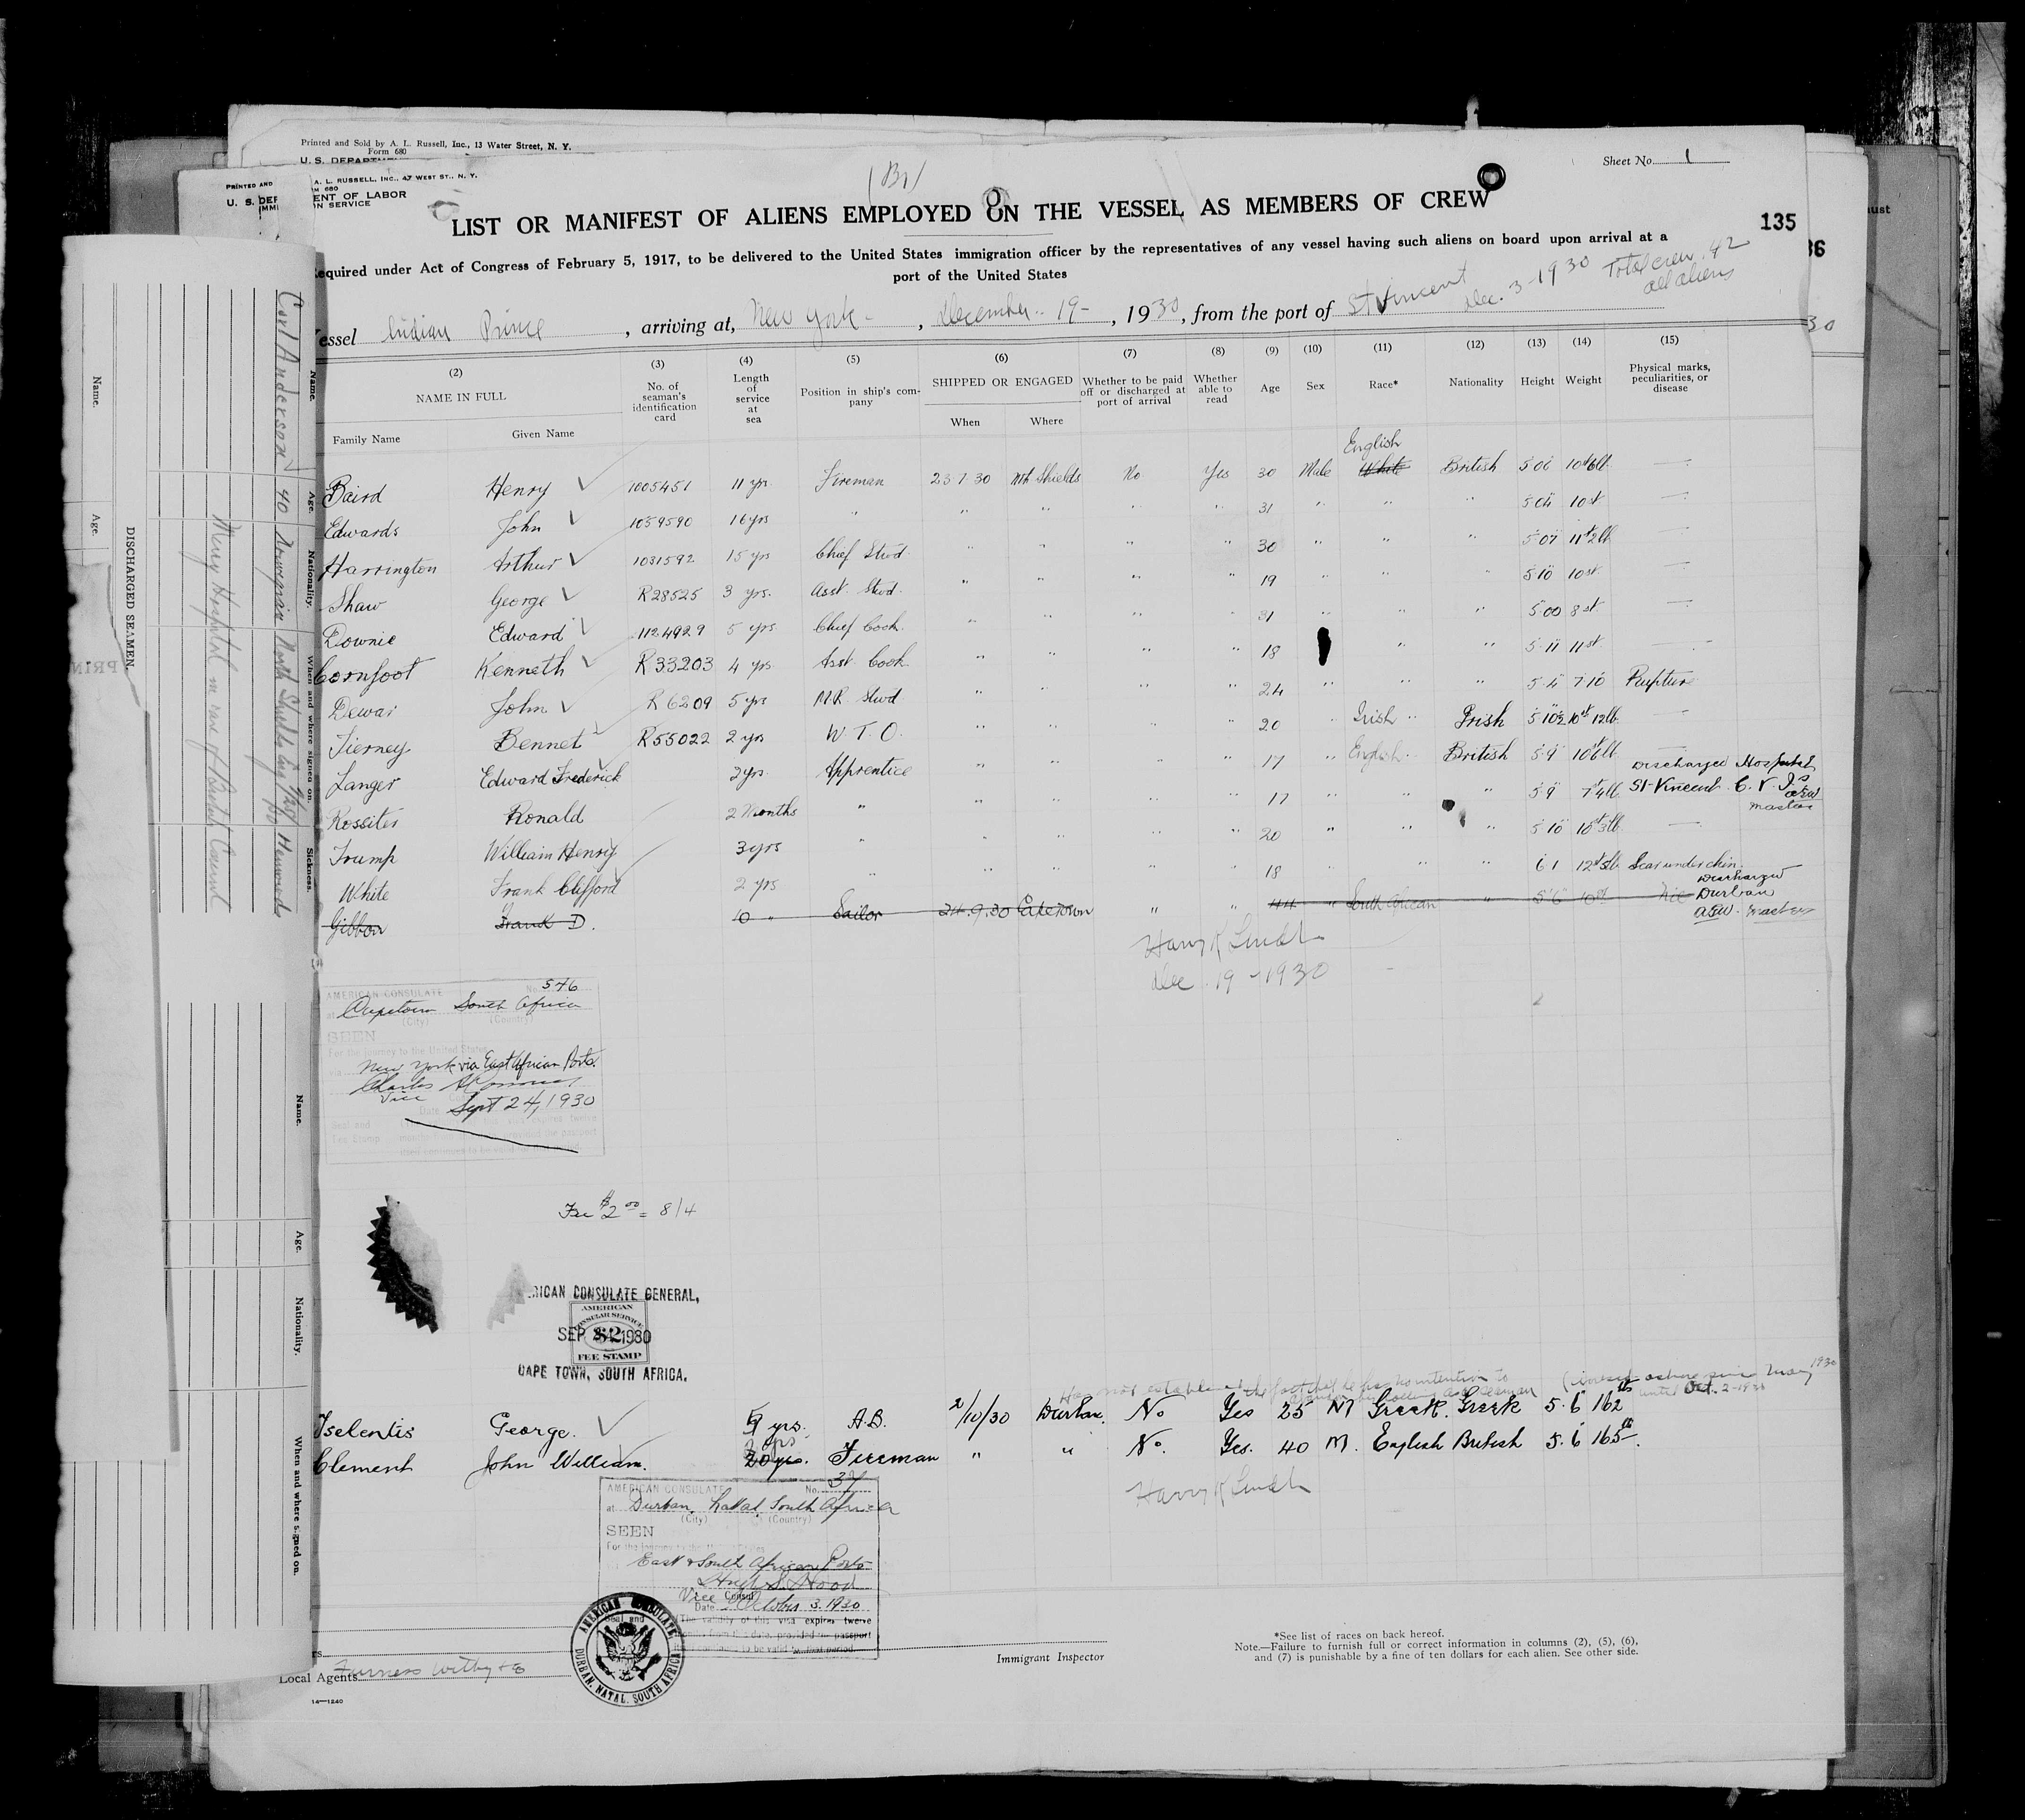 Printed and Sold by A. L. Russell, Inc., 13 Water Street, N. Y.
Form 680
U. S. DEPARTM
PRINTED AND
A. L. RUSSELL, INC., 47 WEST ST., N. Y.
M 680
U. S. DEP ENT OF LABOR
IMMI N SERVICE
(Br)
Sheet No. 1
LIST OR MANIFEST OF ALIENS EMPLOYED ON THE VESSEL AS MEMBERS OF CREW
135
36
equired under Act of Congress of February 5, 1917, to be delivered to the United States immigration officer by the representatives of any vessel having such aliens on board upon arrival at a
port of the United States
Total crew 42
all aliens
essel Indian Prince, arriving at, New York - , December - 19 -, 1930, from the port of St Vincent Dec. 3-1930
30
(2) (3) (4) (5) (6) (7) (8) (9) (10) (11) (12) (13) (14) (15)
NAME IN FULL
Family Name Given Name
No. of seaman's identification card
Length of service at sea
Position in ship's company
SHIPPED OR ENGAGED
When Where
Whether to be paid off or discharged at port of arrival
Whether able to read
Age Sex Race* Nationality Height Weight
Physical marks, peculiarities, or disease
English
Baird Henry ✓ 1005451 11 yrs Fireman 23 7 30 Nth Shields No Yes 30 Male White British 5 06 10st 6lb —
Edwards John ✓ 1059590 16 yrs " " " " " 31 " " " 5 04 10 st —
Harrington Arthur ✓ 1031592 15 yrs Chief Stwd. " " " " 30 " " " 5 07 11st 2lb —
Shaw George ✓ R28525 3 yrs. Asst. Stwd. " " " " 19 " " " 5 10 10 st —
Downie Edward ✓ 1124929 5 yrs Chief Cook. " " " " 31 " " " 5 00 8 st. —
Cornfoot Kenneth ✓ R33203 4 yrs Asst. Cook " " " " 18 " " 5 11 11 st —
Dewar John ✓ R 6209 5 yrs M.R. Stwd " " " " 24 " " " 5 4 7 10 Rupture
Tierney Bennet ✓ R55022 2 yrs W. T. O. " " " " 20 " Irish " Irish 5 10½ 10st 12lb —
Langer Edward Frederick 2 yrs. Apprentice " " " " 17 " English " British 5 9 10st 6lb —
Rossiter Ronald 2 Months " " " " " 17 " " " 5 9 7st 4lb Discharged Hospital
St-Vincent C. V. Is
master
Trump William Henry 3 yrs " " " " " 20 " " " 5 10 10st 3lb —
White Frank Clifford 2 yrs " " " " " 18 " " 6 1 12st 5lb Scar under chin
Gibbon Frank D. 10 " Sailor 24.9.30 Capetown " " 44 " South African " 5' 6" 10st Nil Discharged
Durban
master
Harry R
Dec 19 - 1930
AMERICAN CONSULATE No. 546
at Capetown South Africa
(City) (Country)
SEEN
For the journey to the United States
New York via East African Ports.
Charles
Vice
Date Sept 24, 1930
Fee $2.00 = 8/4
RICAN CONSULATE GENERAL,
AMERICAN
CONSULAR SERVICE
SEP 24 1930
$2
FEE STAMP
CAPE TOWN, SOUTH AFRICA.
Has not established the fact that he has no intention to
May 1930
until Oct. 2-1930
Iselentis George. ✓ 9 yrs. A.B. 2/10/30 Durban. No Yes 25 M Greek. Greek 5. 6 162 lb
Clement John William. 20 yrs. Fireman " " No. Yes. 40 M. English British 5. 6 165 lb.
Harry R
AMERICAN CONSULATE No. 37
at Durban, Natal, South Africa
(City) (Country)
SEEN
For the journey to the United States
East & South African Ports
Hugh S. Hood
Vice Consul
Date October 3. 1930
(The validity of this visa expires twelve
from this date, provided the passport
continues to be valid for that period.
AMERICAN CONSULATE
DURBAN, NATAL, SOUTH AFRICA
rs
Local Agents Furness Withy & Co
14—1240
Immigrant Inspector
*See list of races on back hereof.
Note.—Failure to furnish full or correct information in columns (2), (5), (6),
and (7) is punishable by a fine of ten dollars for each alien. See other side.
DISCHARGED SEAMEN.
Name. Age. Nationality. When and where signed on. Sickness.
Carl Anderson ✓ 40 Norwegian North Shields
Mercy Hospital in care of
Name. Age. Nationality. When and where signed on.
Name. Age.